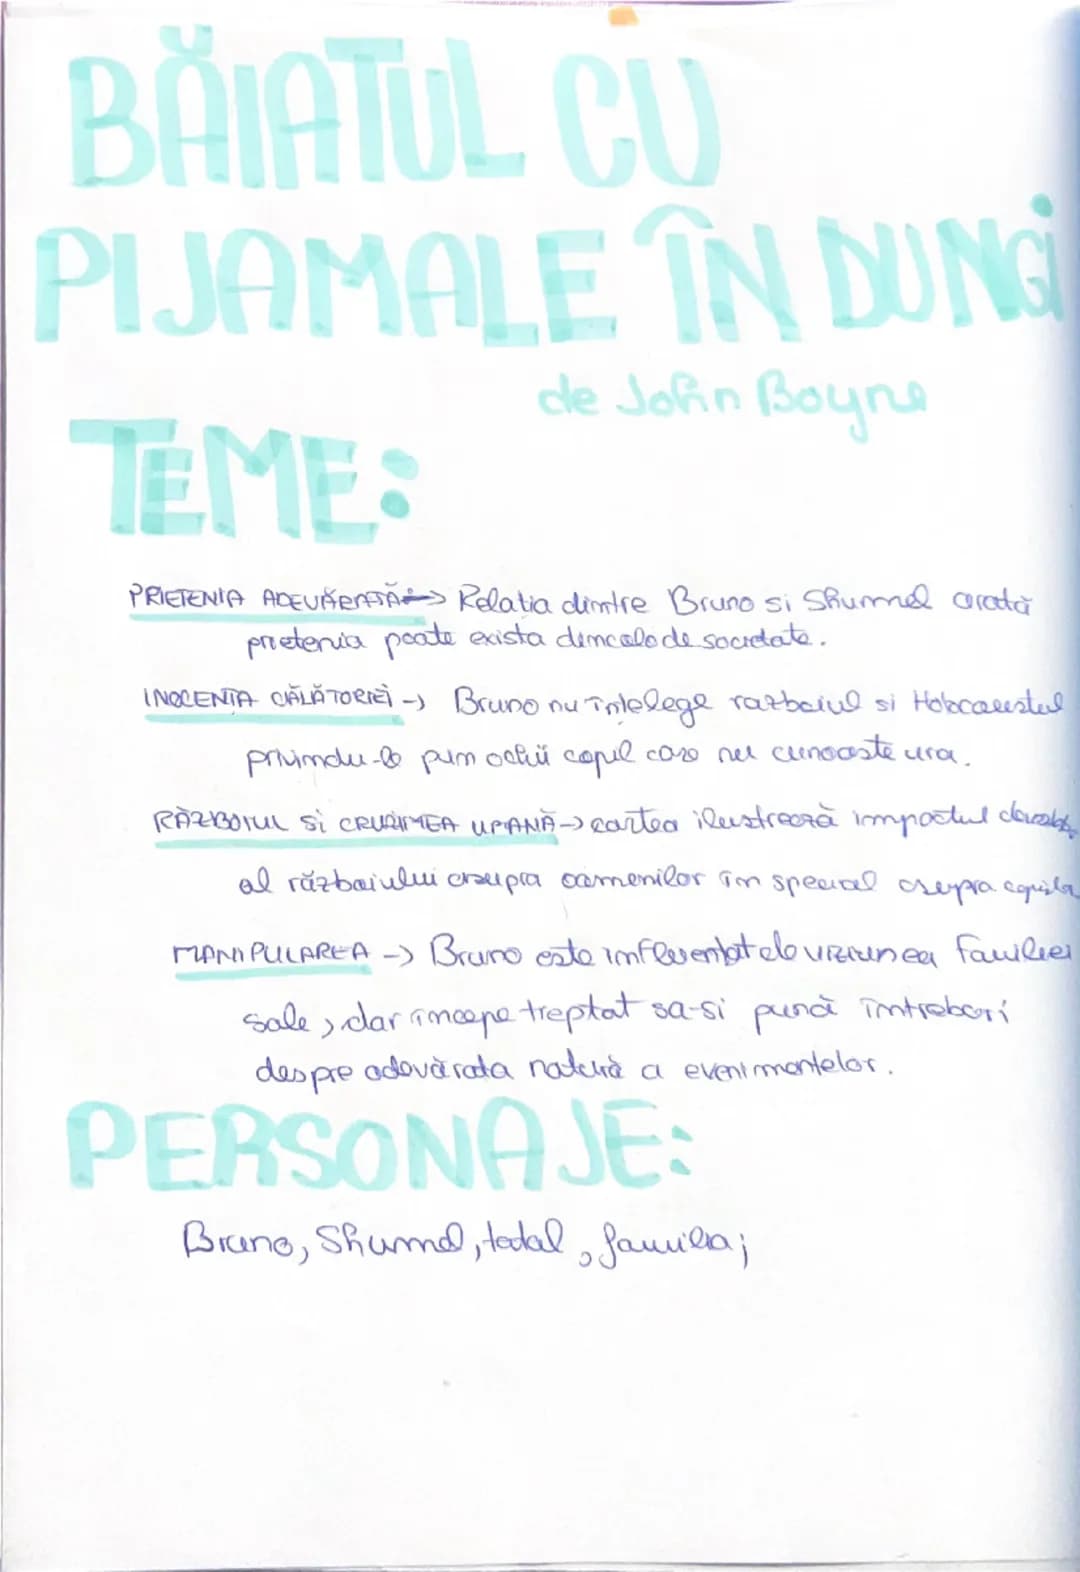 BĂIATUL CU
PIJAMALE ÎN DUNGI
de John Boyne
TEME:
PRIETENIA ADEVĂRATĂ -> Relatia dintre Bruno si Shumel arată
prietenia poate exista dincolo de societate.
INOCENTA CĂLĂTORIEI -> Bruno nu întelege razboiul si Holocaustul
privindu-le prin ochii copil care nu cunoaste ura.
RĂZBOIUL SI CRUZIMEA UMANĂ -> cartea ilustrează impactul
al războiului asupra oamenilor în special asupra copiilor
MANIPULAREA -> Bruno este influentat de viziunea familiei
sale, dar incepe treptat sa-si pună întrebari
despre adevărata natură a evenimentelor.
PERSONAJE:
Bruno, Shumel, tatal, familia;